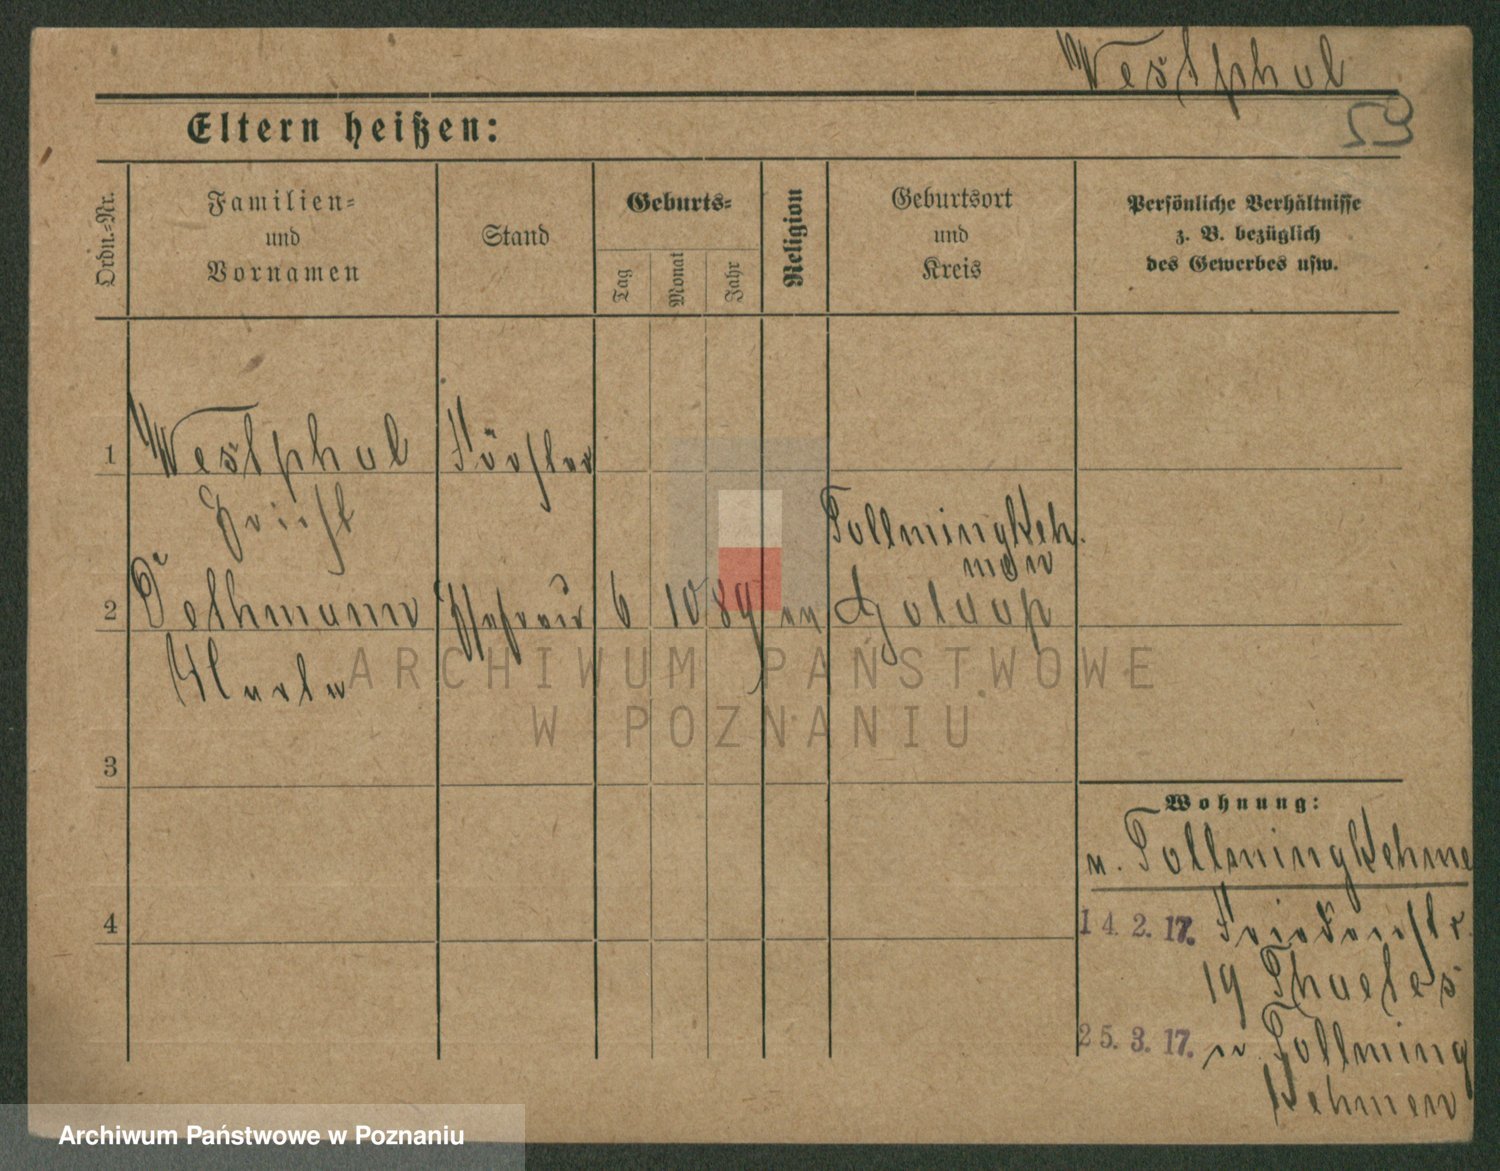 Westphal
Eltern heißen:
Ordn.-Nr.
Familien-
und
Vornamen
Stand
Geburts-
Tag
Monat
Jahr
Religion
Geburtsort
und
Kreis
Persönliche Verhältnisse
z. B. bezüglich
des Gewerbes usw.
1
Westphal
Förster
Horst
Tollmingkeh.
men
2
Dethmann
Ehefrau
6
10
89
ev
Goldap
Marta
ARCHIWUM PAŃSTWOWE
W POZNANIU
3
Wohnung:
n. Tollmingkehme
4
14. 2. 17.
19 Thaeles
25. 3. 17. n. Tollming
kehmen
Archiwum Państwowe w Poznaniu